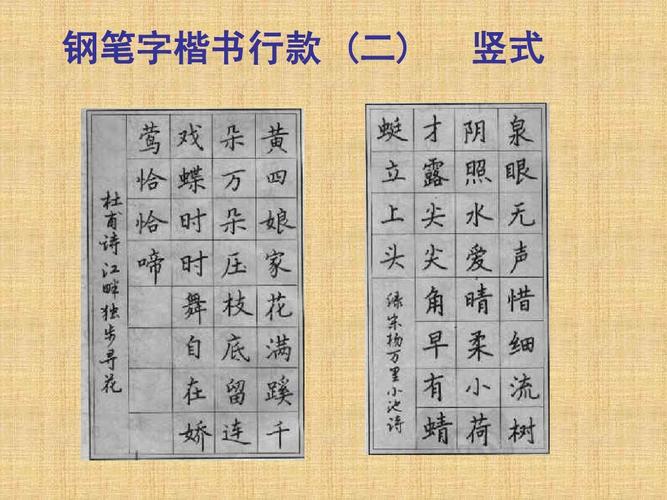 钢笔字楷书行款（二） 竖式
黄四娘家花满蹊千
朵万朵压枝底留连
戏蝶时时舞自在娇
莺恰恰啼
杜甫诗江畔独步寻花
泉眼无声惜细流树
阴照水爱晴柔小荷
才露尖尖角早有蜻
蜓立上头
绿宋杨万里小池诗